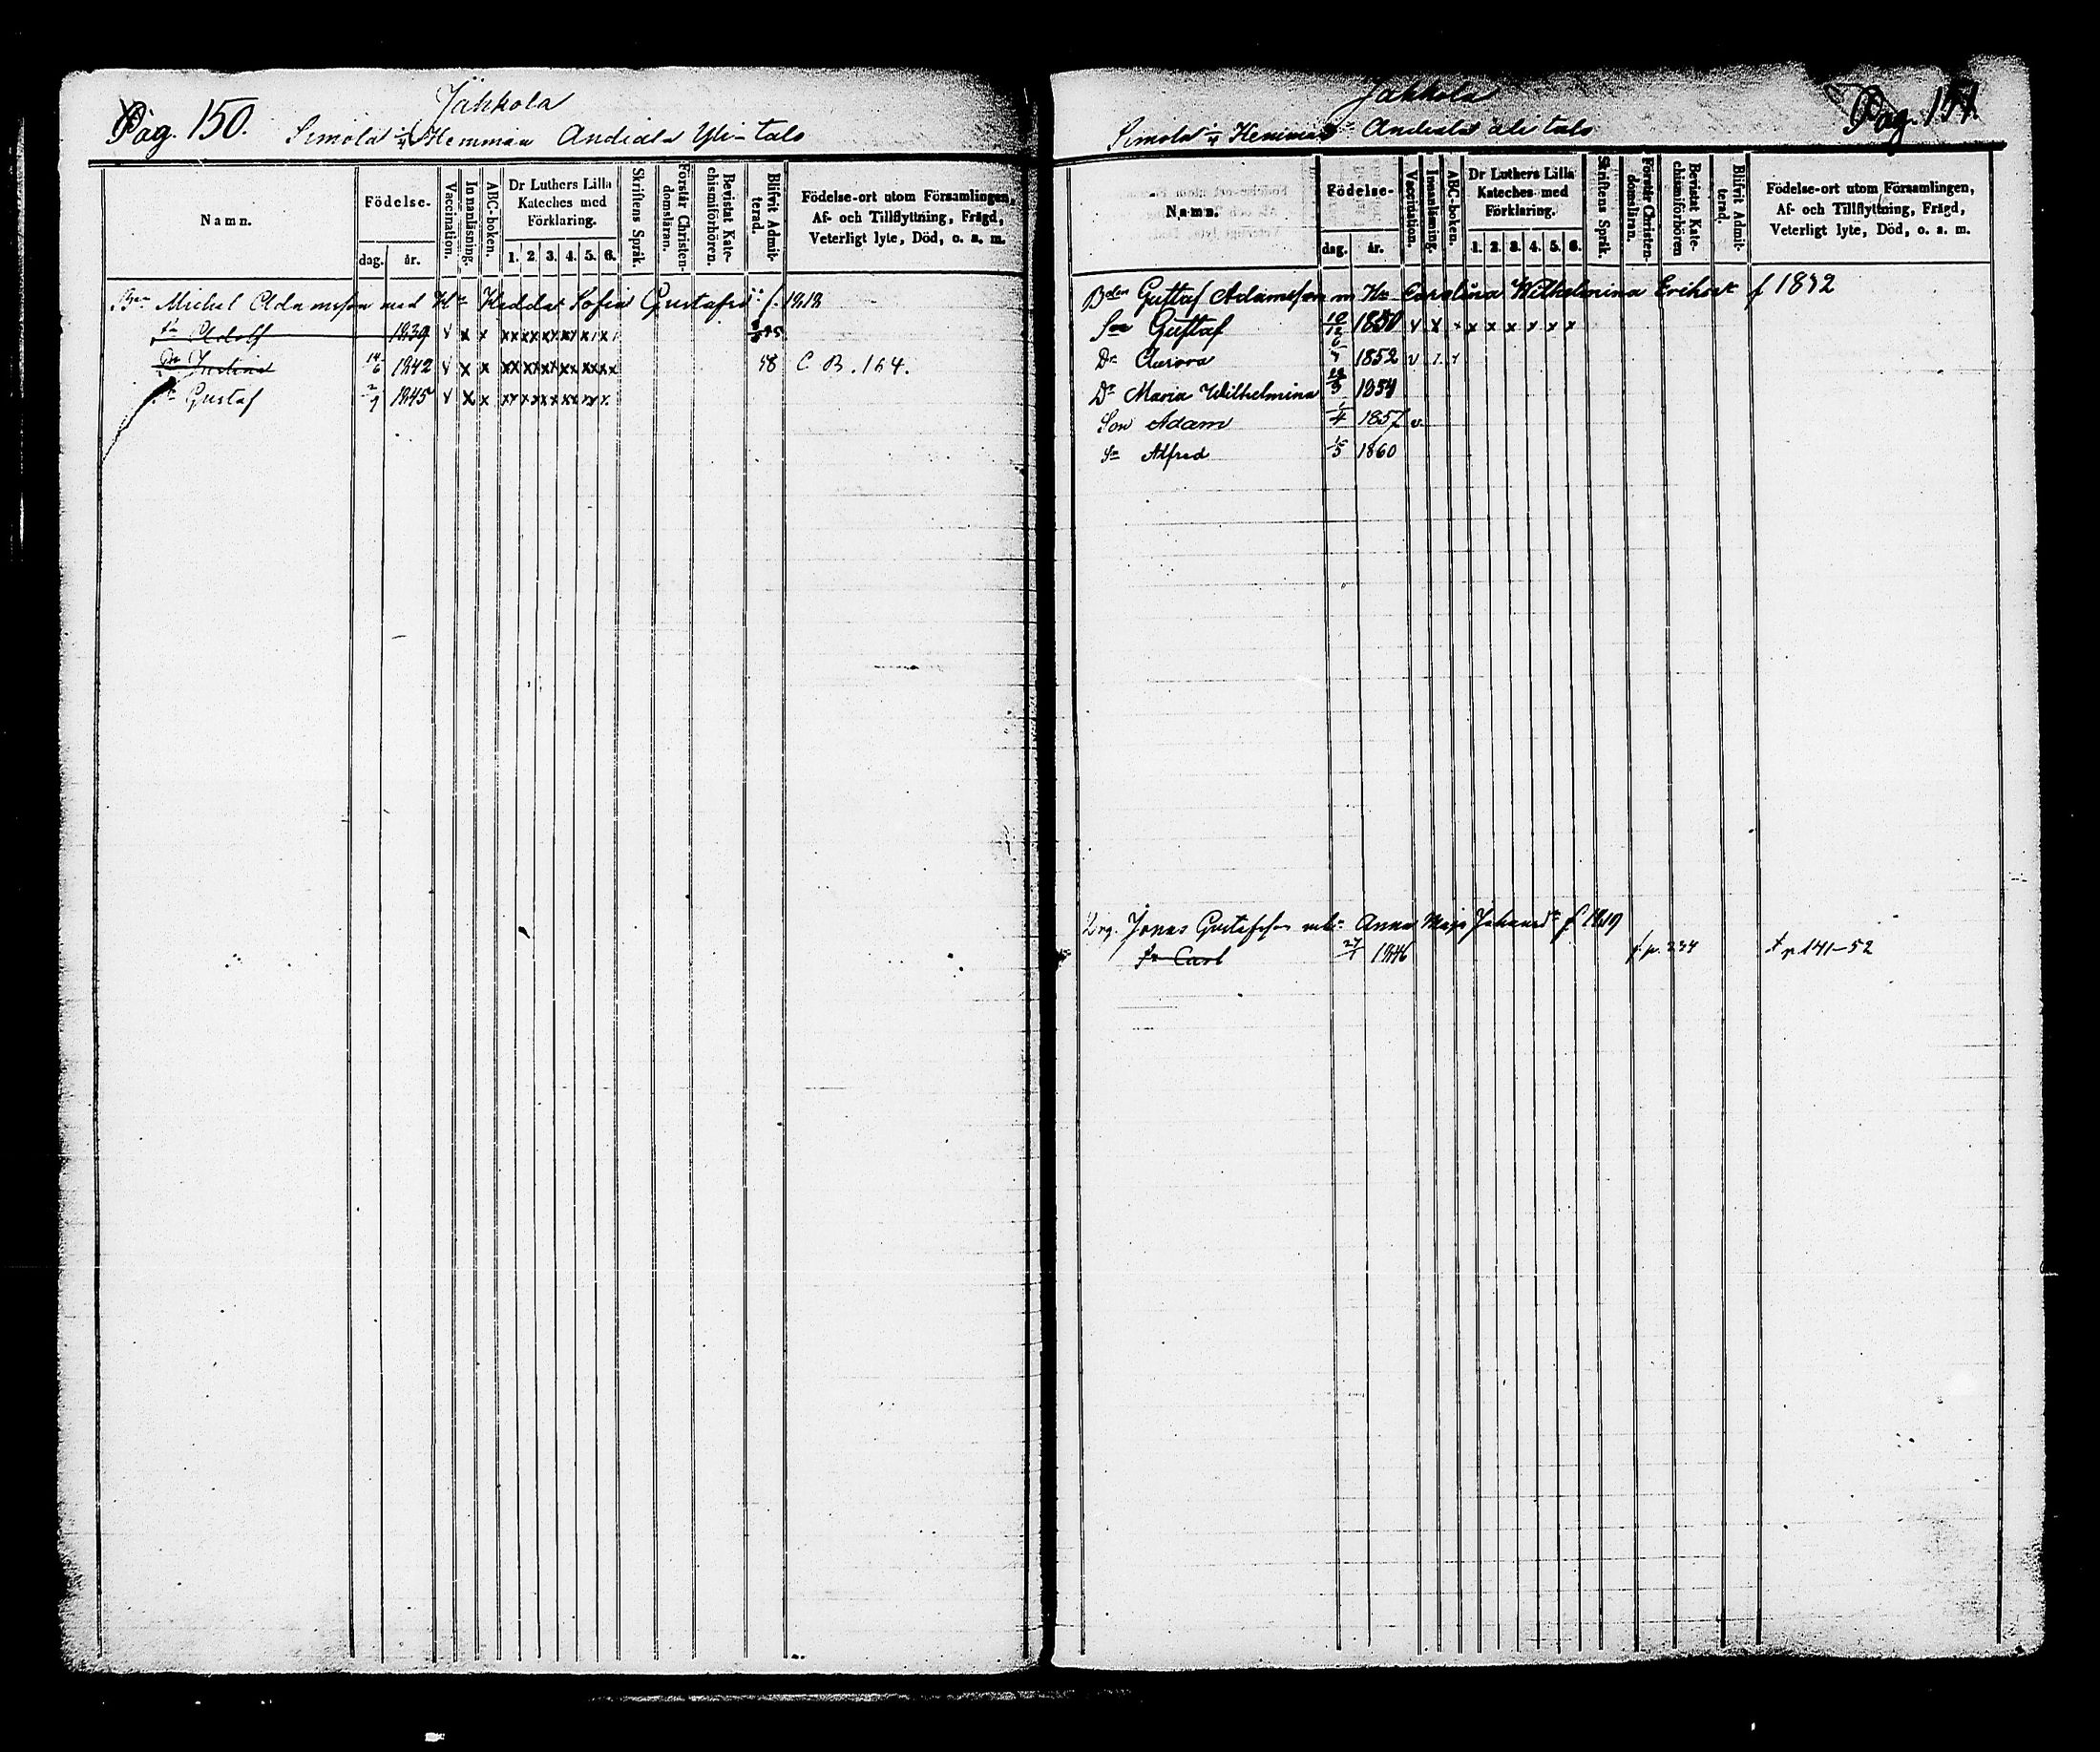 Pag. 150.
Jakkola
Simola ¼ Hemman Andiala Yli-talo
Namn.
Födelse-
dag. år.
Vaccination.
Innanläsning.
ABC-boken.
Dr Luthers Lilla Kateches med Förklaring.
1. 2. 3. 4. 5. 6.
Skriftens Språk.
Förstår Christendomsläran.
Bevistat Katechismiförhören.
Blifvit Admitterad.
Födelse-ort utom Församlingen,
Af- och Tillflyttning, Frägd,
Veterligt lyte, Död, o. s. m.
Michel Adamsson med H. Hedda Sofia Gustafsd. f. 1818
Sn Adolf 1839 v x x xx xx xx xx x x
Justina 14/6 1842 v x x xx xx xx xx xx xx 58 C B. 164.
Sn Gustaf 2/7 1845 v x x xx xx xx xx xx x
Pag. 151.
Jakkola
Simola ¼ Hemman Andiala ali talo
Namn.
Födelse-
dag. år.
Vaccination.
Innanläsning.
ABC-boken.
Dr Luthers Lilla
Kateches med
Förklaring.
1. 2. 3. 4. 5. 6.
Skriftens Språk.
Förstår Christendomsläran.
Bevistat Katechismiförhören
Blifvit Admitterad.
Födelse-ort utom Församlingen,
Af- och Tillflyttning, Frägd,
Veterligt lyte, Död, o. s. m.
Bden Gustaf Adamsson m Hu Carolina Wilhelmina Eriksdr f 1832
Son Gustaf 10/12 1850 v x x x x x x x x
Dr Aurora 1852 v
Dr Maria Wilhelmina 1854
Son Adam 1/4 1857 v
Sn Alfred 15/5 1860
Jonas Gustafsson Anna Maja Johansdr f 1819
Sn Carl 27/1 1846 f. p. 234 f p 141-52